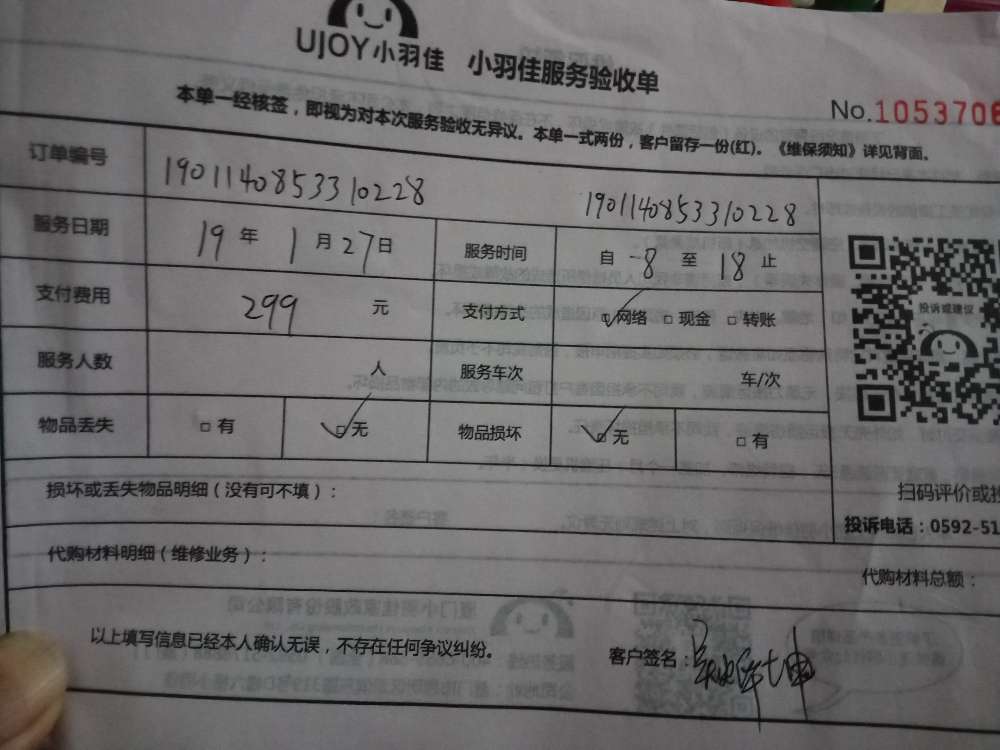 UJOY小羽佳 小羽佳服务验收单
No.1053706
本单一经核签，即视为对本次服务验收无异议。本单一式两份，客户留存一份(红)。《维保须知》详见背面。
订单编号 1901140853310228 1901140853310228
服务日期 19年1月27日 服务时间 自 8 至 18 止
支付费用 299 元 支付方式 网络 现金 转账
服务人数 人 服务车次 车/次
物品丢失 有 无 物品损坏 无 有
投诉或建议
损坏或丢失物品明细（没有可不填）：
扫码评价或投
投诉电话：0592-51
代购材料明细（维修业务）：
代购材料总额：
以上填写信息已经本人确认无误，不存在任何争议纠纷。
客户签名：